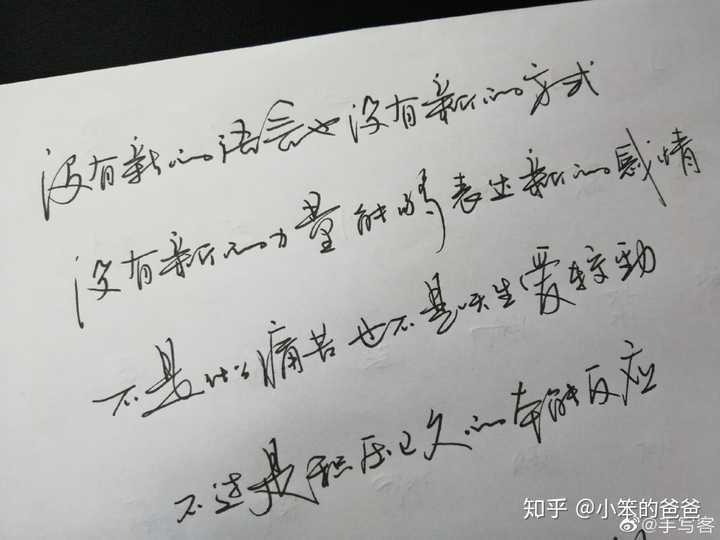 没有新的语言也没有新的方式
没有新的力量能够表达新的感情
不是什么痛苦也不是天生爱较劲
不过是积压已久的本能反应
知乎 @小笨的爸爸
@手写客